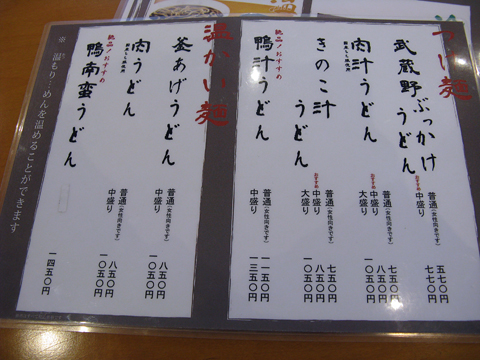 つけ麺
武蔵野ぶっかけうどん
普通(女性向きです) 五七〇円
おすすめ 中盛り 七七〇円
肉汁うどん
普通(女性向きです) 七五〇円
おすすめ 中盛り 八五〇円
大盛り 一〇五〇円
きのこ汁うどん
普通(女性向きです) 七五〇円
おすすめ 中盛り 八五〇円
大盛り 一〇五〇円
絶品!おすすめ
鴨汁うどん
普通(女性向きです) 一一五〇円
中盛り 一三五〇円
温かい麺
釜あげうどん
普通(女性向きです) 八五〇円
中盛り 一〇五〇円
肉うどん
普通(女性向きです) 八五〇円
中盛り 一〇五〇円
絶品!おすすめ
鴨南蛮うどん
一四五〇円
※ 温もり…めんを温めることができます